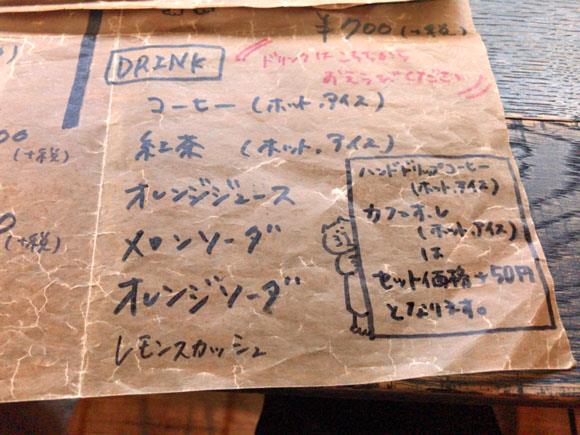 ¥700(+税)
DRINK
ドリンクはこちらから
おえらびください
コーヒー(ホット,アイス)
紅茶 (ホット,アイス)
オレンジジュース
メロンソーダ
オレンジソーダ
レモンスカッシュ
ハンドドリップコーヒー
(ホット,アイス)
カフェオ・レ
(ホット,アイス)
は
セット価格+50円
となります。
00
(+税)
(+税)